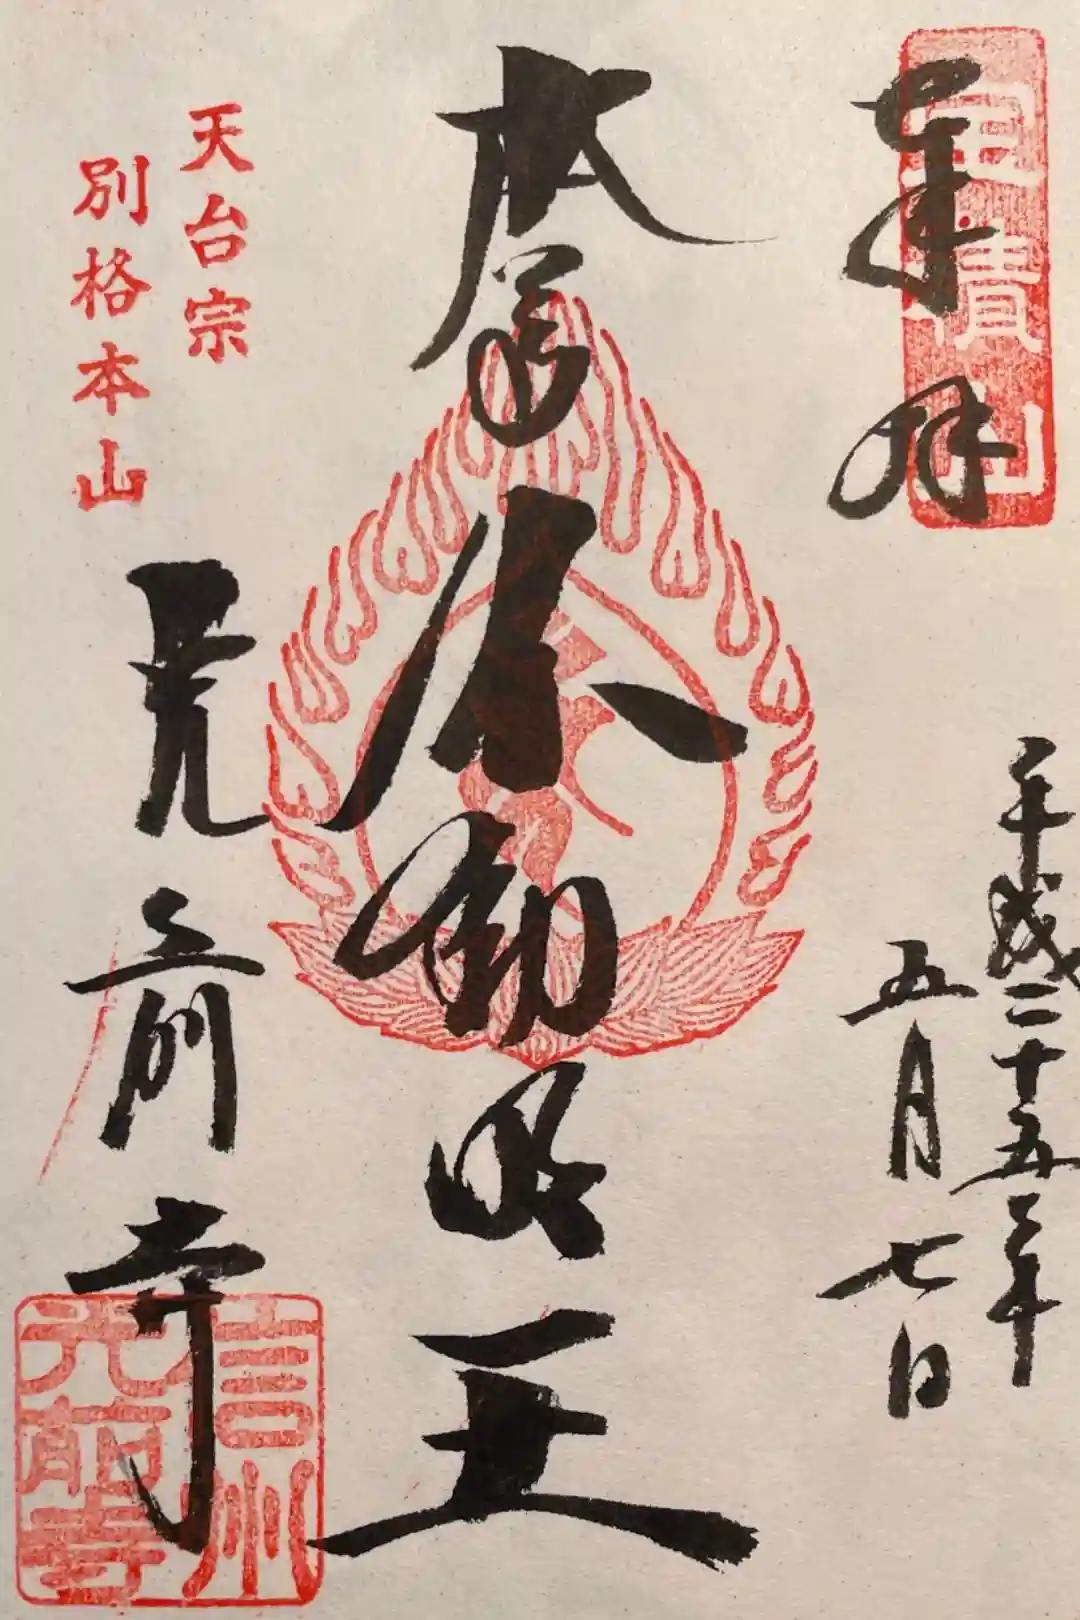 奉拝
宝積山
平成二十五年
五月七日
本尊 不動明王
天台宗
別格本山
光前寺
信州
光前寺